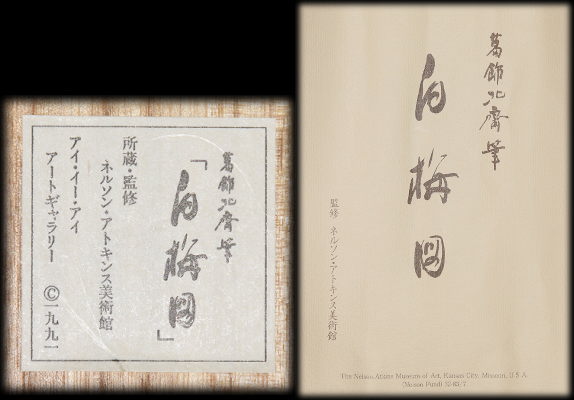 葛飾北齋筆
「白梅図」
所蔵・監修
ネルソン・アトキンス美術館
アイ・イー・アイ
アートギャラリー ©一九九一
葛飾北齋筆
白梅図
監修 ネルソン・アトキンス美術館
The Nelson Atkins Museum of Art, Kansas City, Missouri, U.S.A.
(Nelson Fund) 32-83/7